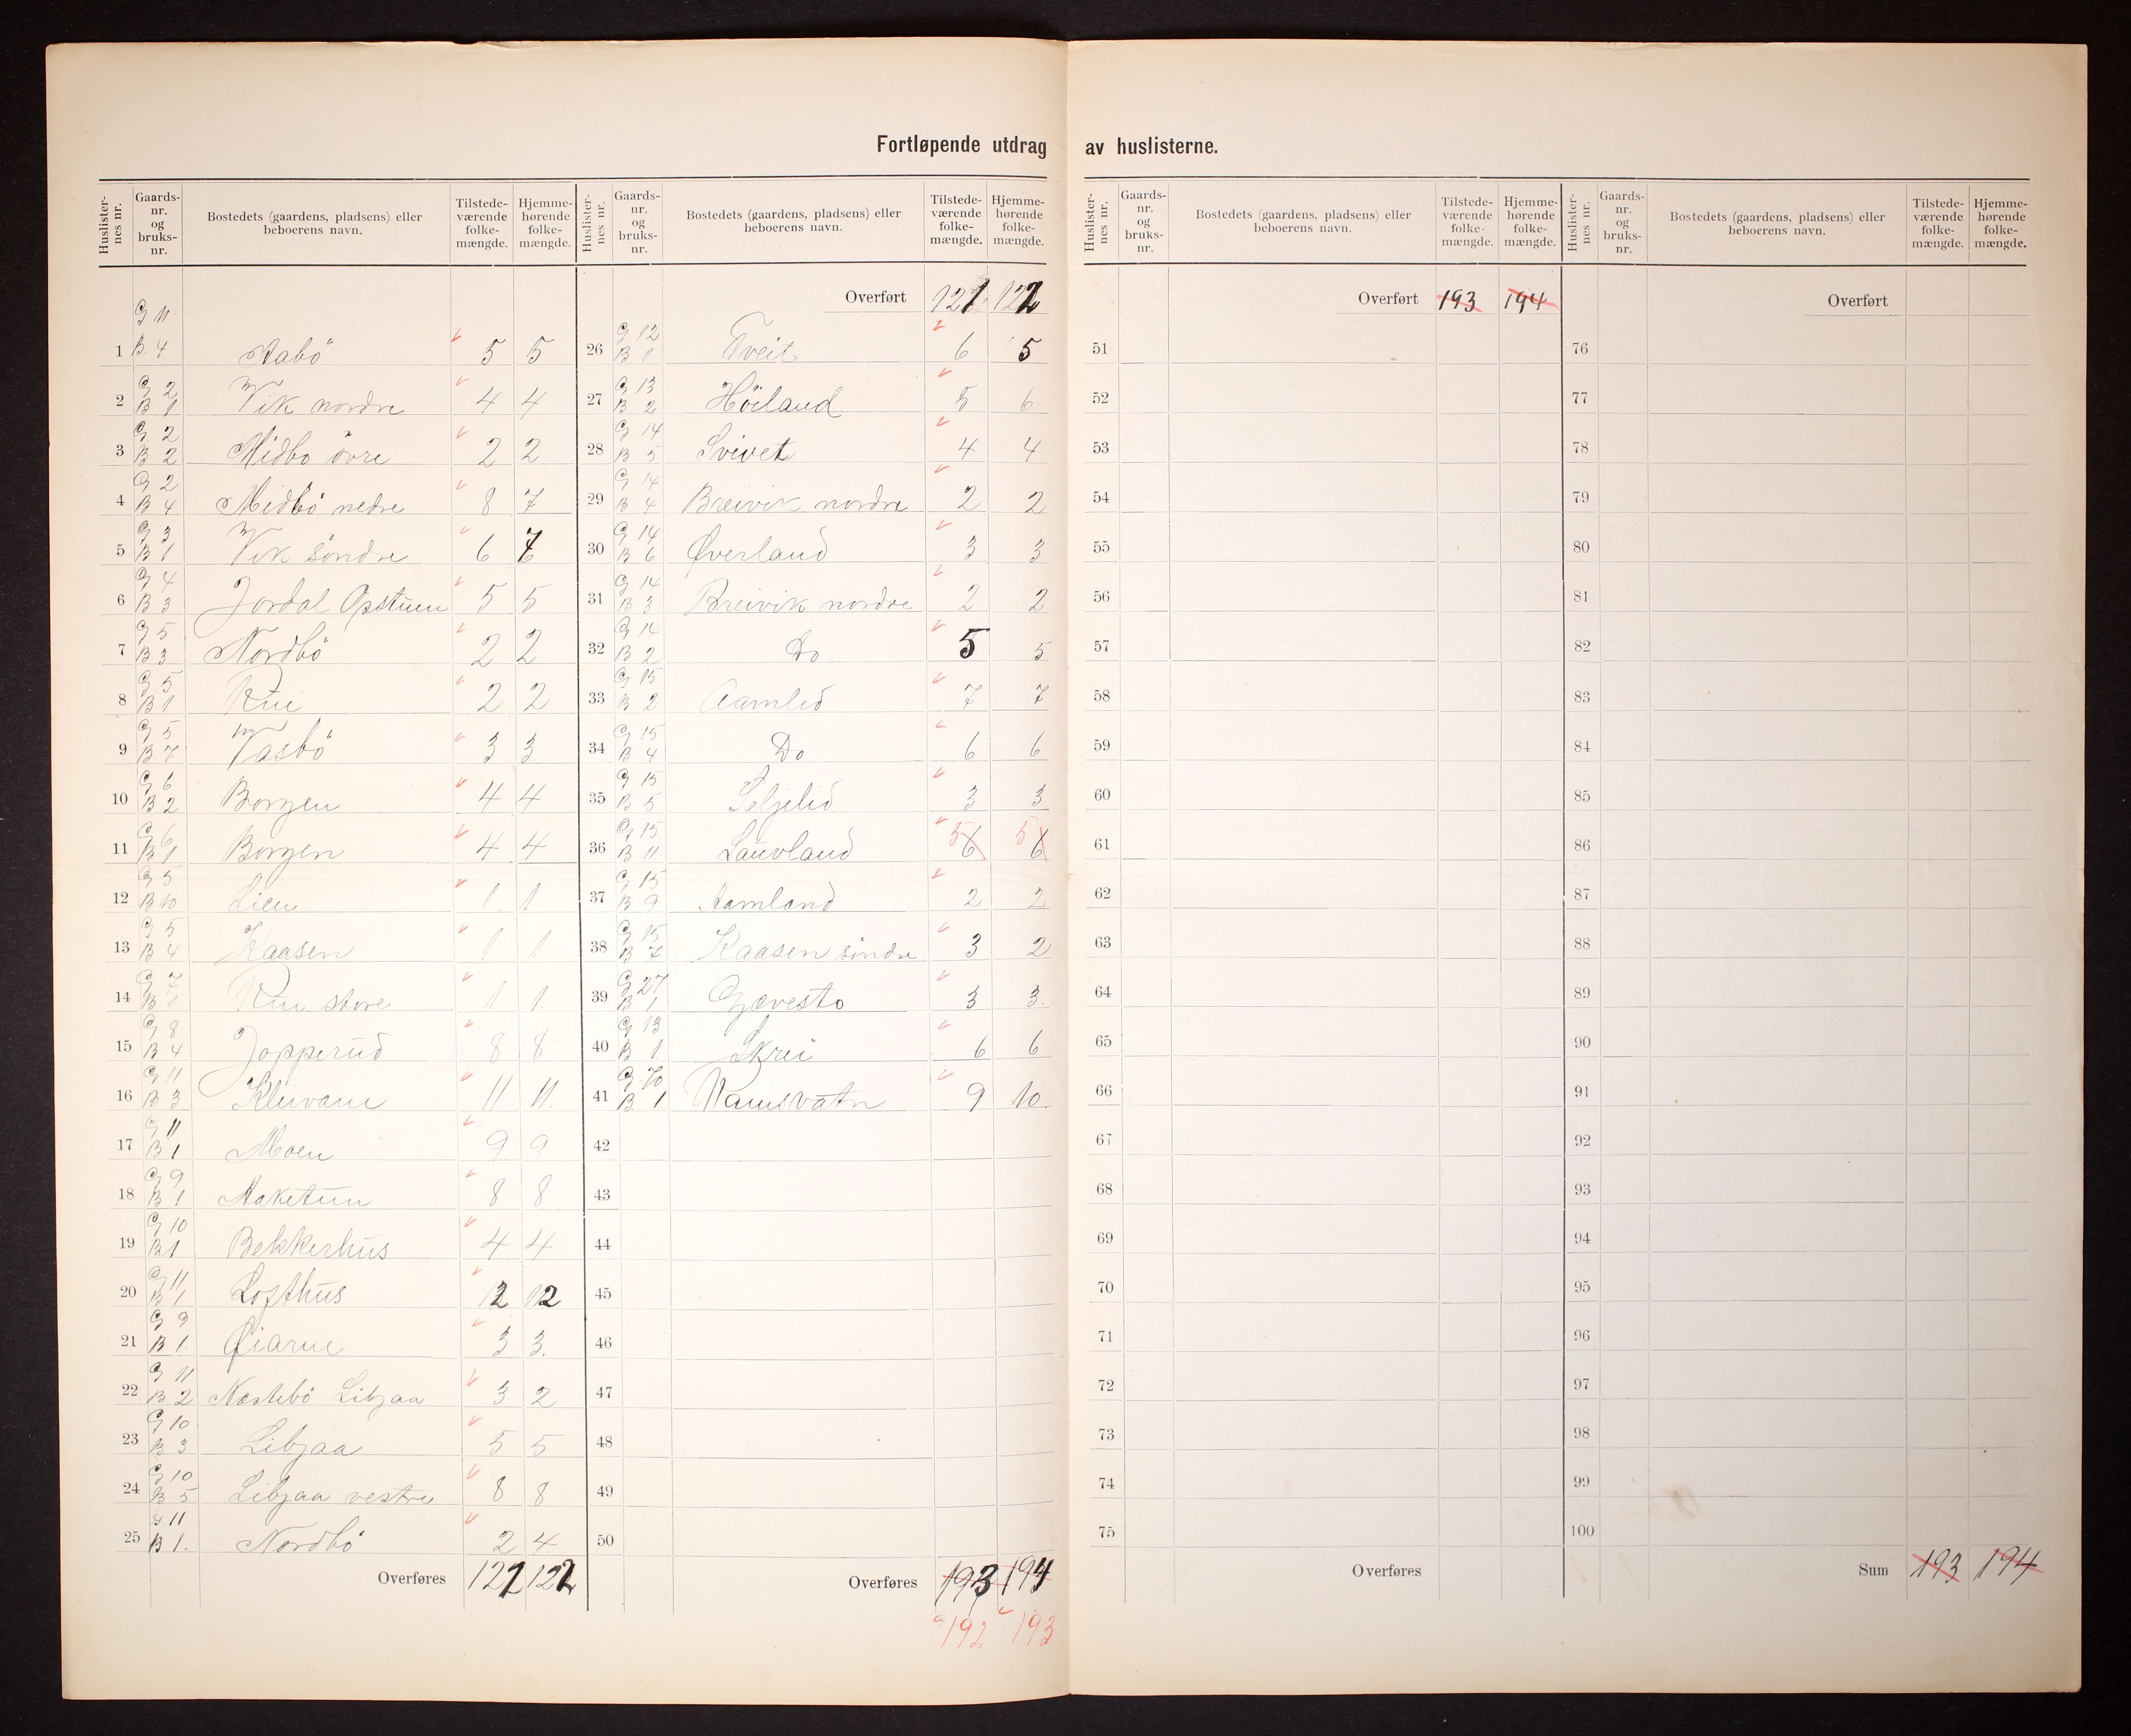 Fortløpende utdrag av huslisterne.
Huslister-nes nr. Gaards-nr. og bruks-nr. Bostedets (gaardens, pladsens) eller beboerens navn. Tilstede-værende folke-mængde. Hjemme-hørende folke-mængde.
1 G 11 B. 4 Aabö 5 5
2 G 2 B 1 Vik nordre 4 4
3 G 2 B 2 Midbo övre 2 2
4 G 2 B 4 Midbö nedre 8 7
5 G 3 B 1 Vik söndre 6 7
6 G 4 B 3 Jordal Opstuen 5 5
7 G 5 B 3 Nordbö 2 2
8 G 5 B 1 Rui 2 2
9 G 5 B 7 Vasbö 3 3
10 G 6 B 2 Borgen 4 4
11 G 6 B 1 Borgen 4 4
12 G 5 B 10 Lien 1 1
13 G 5 B 4 Kaasen 1 1
14 G 7 B 1 Rui store 1. 1.
15 G 8 B 4 Jopperud 8 8
16 G 11 B 3 Klivane 11 11.
17 G 11 B 1 Moen 9 9
18 G 9 B 1 Aaketun 8 8
19 G 10 B 1 Bekkerhus 4 4
20 G 11 B 1 Lofthus 12 12
21 G 9 B 1. Øiarne 3 3.
22 G 11 B 2 Nästebö Libjaa 3 2
23 G 10 B 3 Libjaa 5 5
24 G 10 B 5 Libjaa vestre 8 8
25 G 11 B 1. Nordbö 2 4
Overføres 121 122
Huslister-nes nr. Gaards-nr. og bruks-nr. Bostedets (gaardens, pladsens) eller beboerens navn. Tilstede-værende folke-mængde. Hjemme-hørende folke-mængde.
Overført 121 122
26 G 12 B 1 Tveit 6 5
27 G 13 B 2 Höiland 5 6
28 G 14 B 5 Svivet 4 4
29 G 14 B 4 Breivik nordre 2 2
30 G 14 B 6 Øverland 3 3
31 G 14 B 3 Breivik nordre 2 2
32 G 14 B 2 Do 5 5
33 G 15 B 2 Aamlid 7 7
34 G 15 B 4 Do 6 6
35 G 15 B 5 Seljelid 3 3
36 G 15 B 11 Lauvland 5 6 5 6
37 G 15 B 9 Aamland 2 2
38 G 15 B 7 Kaasen söndre 3 2
39 G 27 B 1 Gjævesto 3 3.
40 G 13 B 1 Skrei 6 6
41 G 70 B. 1 Ramsvatn 9 10.
42
43
44
45
46
47
48
49
50
Overføres 193 194
192 193
Huslister-nes nr. Gaards-nr. og bruks-nr. Bostedets (gaardens, pladsens) eller beboerens navn. Tilstede-værende folke-mængde. Hjemme-hørende folke-mængde.
Overført 193 194
51
52
53
54
55
56
57
58
59
60
61
62
63
64
65
66
67
68
69
70
71
72
73
74
75
Overføres
Huslister-nes nr. Gaards-nr. og bruks-nr. Bostedets (gaardens, pladsens) eller beboerens navn. Tilstede-værende folke-mængde. Hjemme-hørende folke-mængde.
Overført
76
77
78
79
80
81
82
83
84
85
86
87
88
89
90
91
92
93
94
95
96
97
98
99
100
Sum 193 194